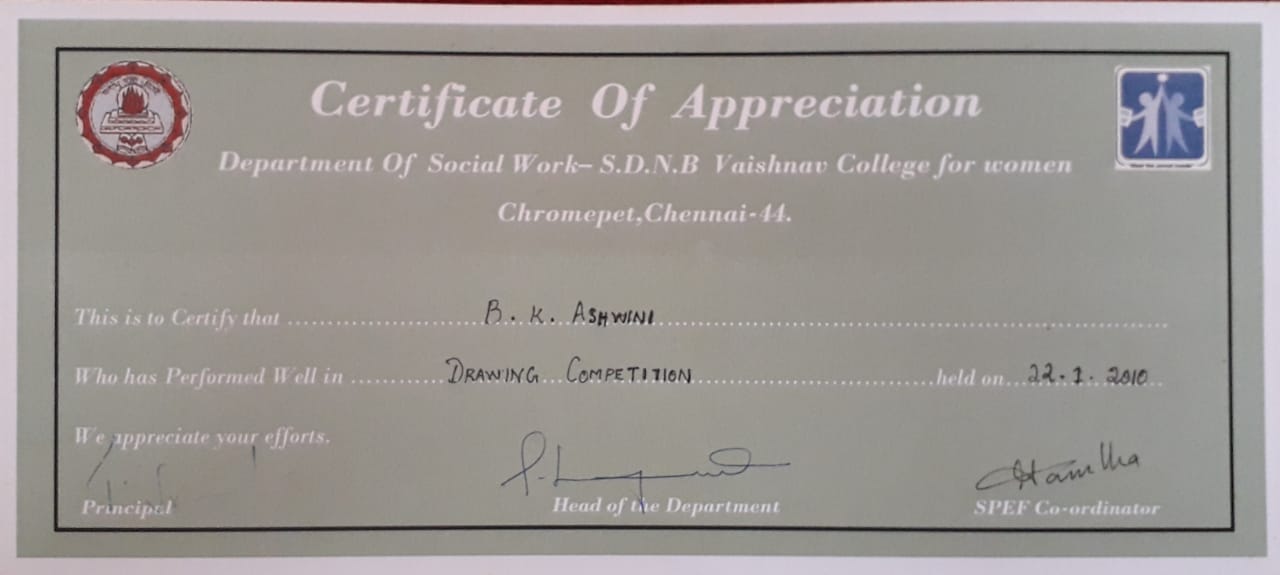 Certificate Of Appreciation
Department Of Social Work– S.D.N.B Vaishnav College for women
Chromepet,Chennai-44.
This is to Certify that ........ B. K. ASHWINI ........
Who has Performed Well in ........ DRAWING COMPETITION ........ held on ... 22.1.2010 ..
We appreciate your efforts.
Principal Head of the Department SPEF Co-ordinator